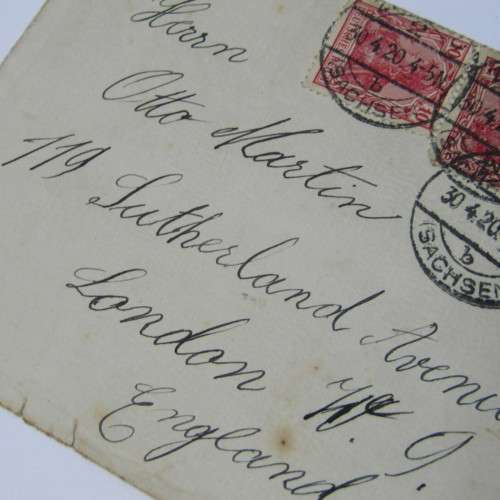 Herrn
Otto Martin
119 Sutherland Avenu
London W 9.
England
30.4.20.4-5N
b
(SACHSEN)
30.4.20
b
(SACHSEN